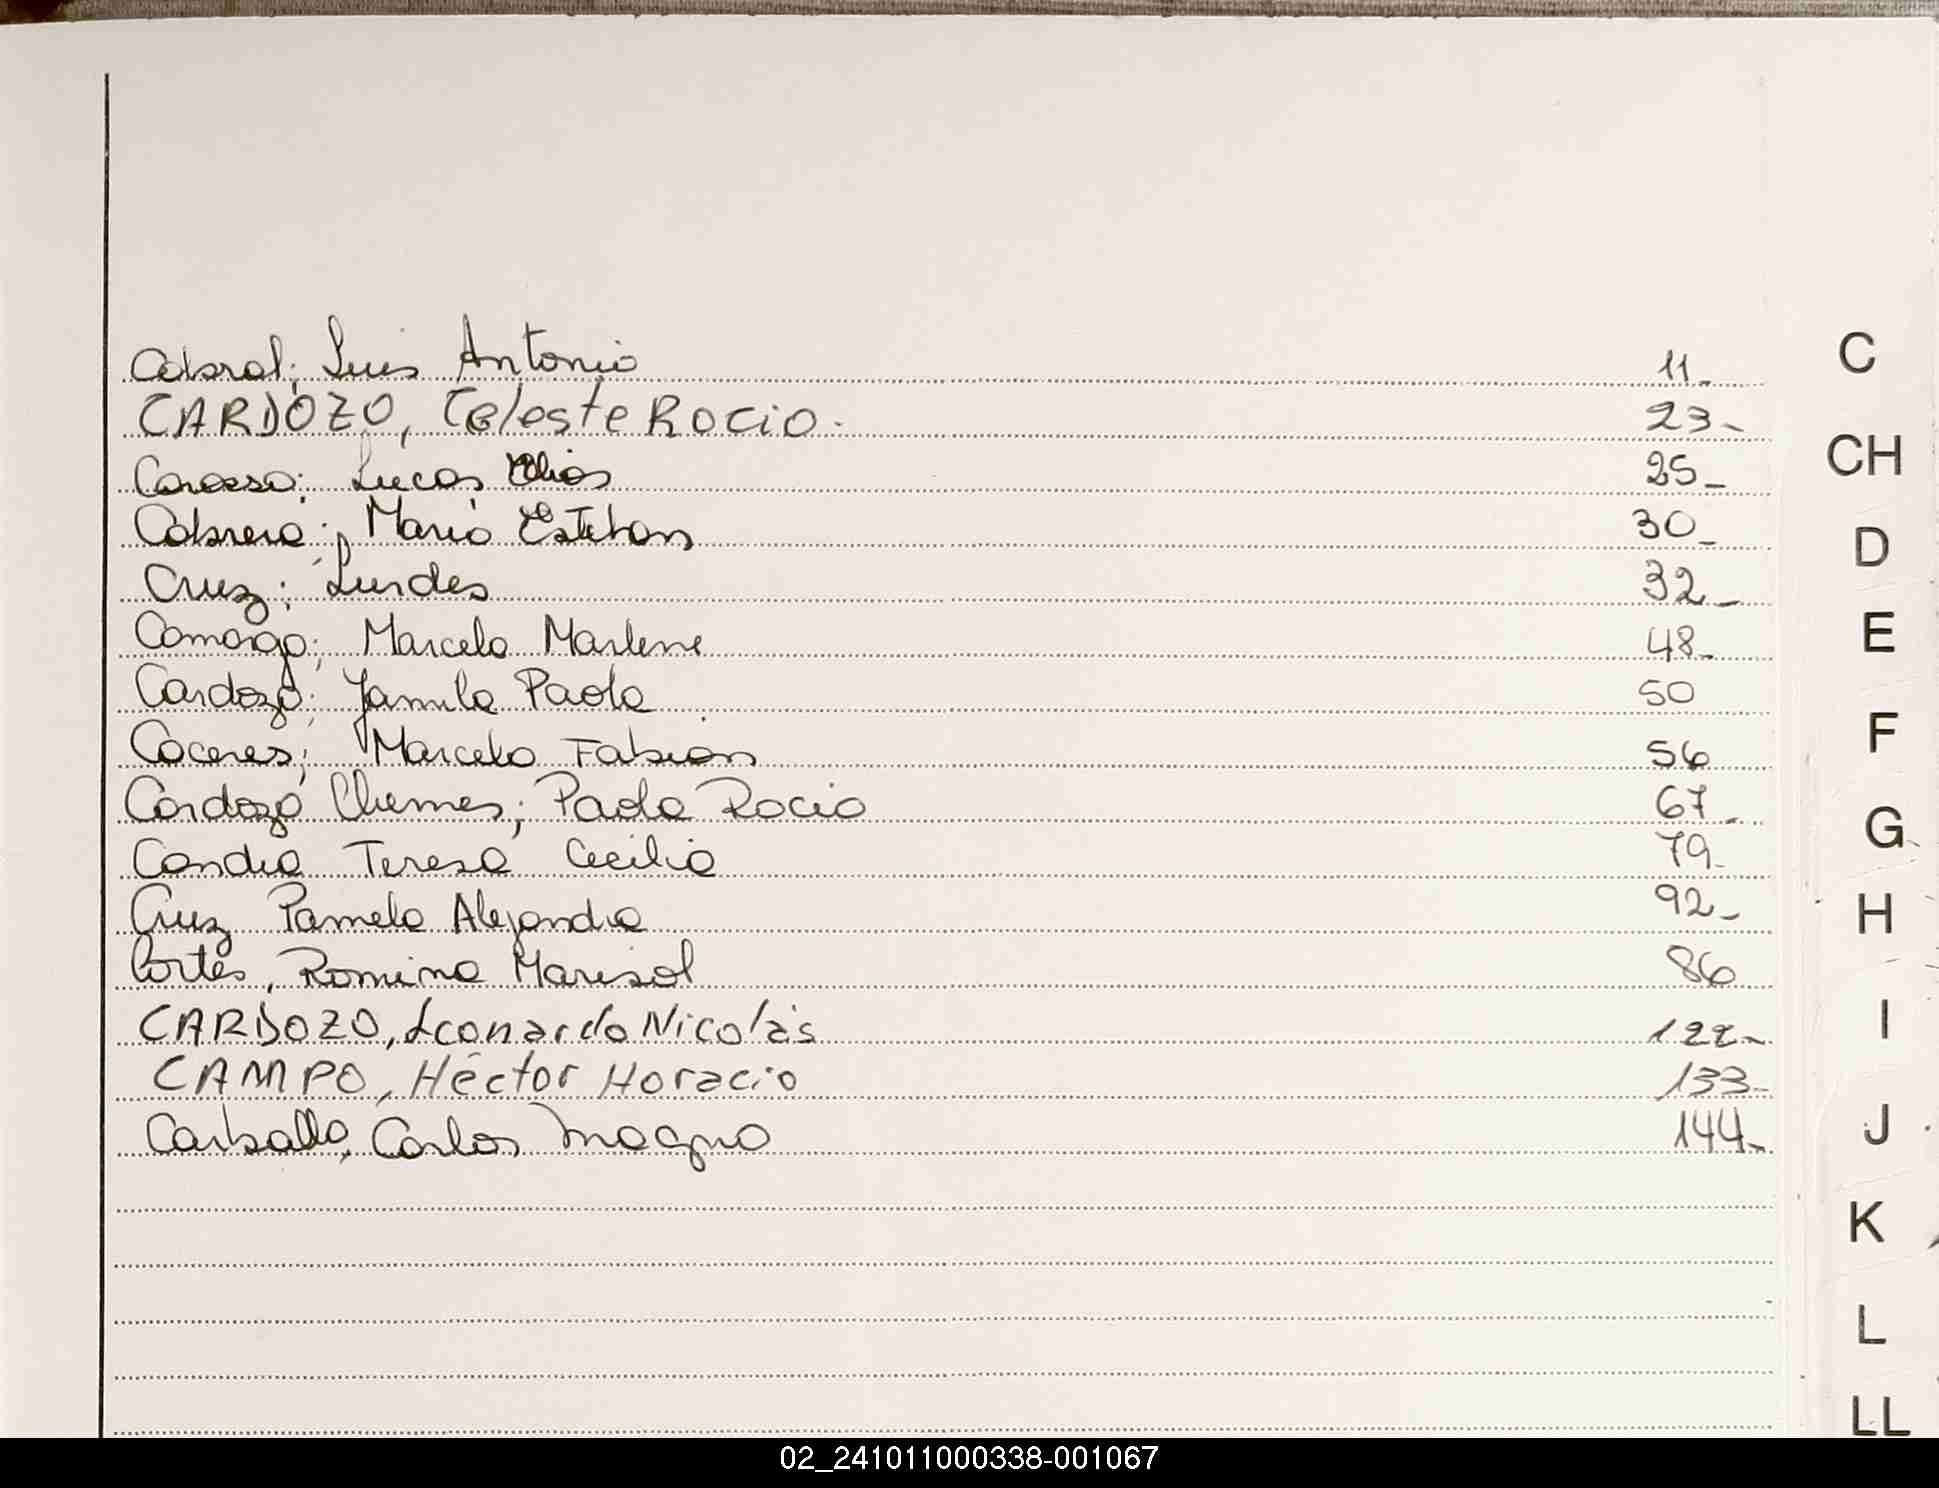 Cabral; Luis Antonio 11-
CARDOZO, Celeste Rocio. 23-
Carosso; Lucas Elias 25-
Cabrera; Mario Esteban 30-
Cruz; Lurdes 32-
Camargo; Marcela Marlene 48-
Cardozo; Yamila Paola 50
Caceres; Marcelo Fabian 56
Cardozo Chemes; Paola Rocio 67-
Candia Teresa Cecilia 79-
Cruz Pamela Alejandra 92-
Cortés, Romina Marisol 86
CARDOZO, Leonardo Nicolás 122-
CAMPO, Héctor Horacio 133-
Carballo, Carlos Magno 144-
C
CH
D
E
F
G
H
I
J
K
L
LL
02_241011000338-001067